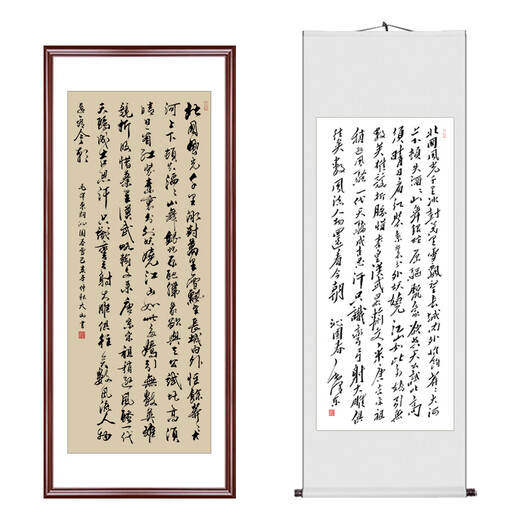 北國風光千里冰封萬里雪飄望長城内外惟餘莽莽大
河上下頓失滔滔山舞銀蛇原馳蠟象欲與天公試比高須
晴日看紅裝素裹分外妖嬈江山如此多嬌引無數英雄
競折腰惜秦皇漢武略輸文采唐宗宋祖稍遜風騷一代
天驕成吉思汗只識彎弓射大雕俱往矣數風流人物
還看今朝
毛澤東詞沁園春雪己亥年仲秋大山書
北國風光千里冰封萬里雪飄望長城内外惟餘莽莽大河
上下頓失滔滔山舞銀蛇原馳蠟象欲與天公試比高
須晴日看紅裝素裹分外妖嬈江山如此多嬌引無
數英雄競折腰惜秦皇漢武略輸文采唐宗宋祖
稍遜風騷一代天驕成吉思汗只識彎弓射大雕俱
往矣數風流人物還看今朝
沁園春
毛澤東